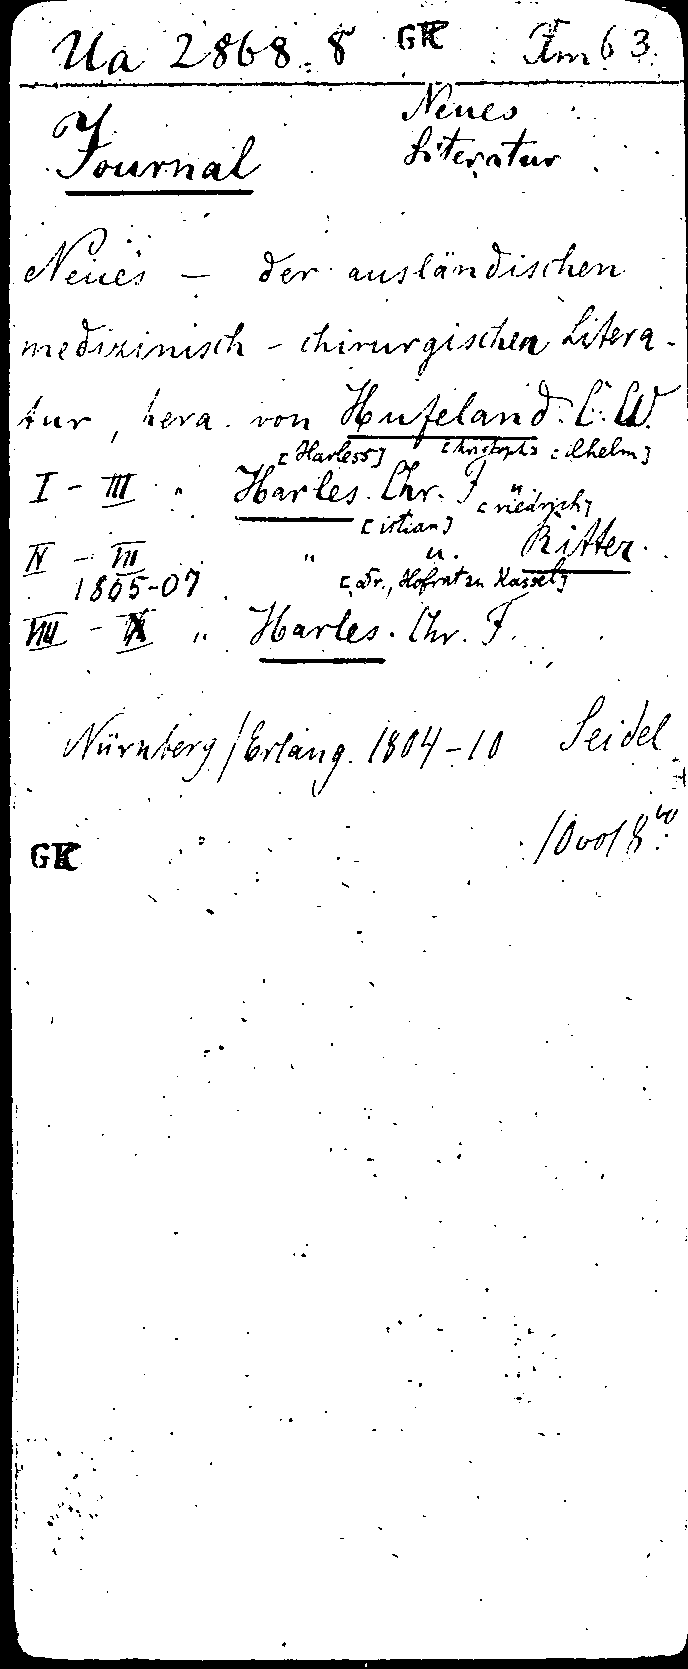 Ua 2868. 8 GK Tm 63.
Neues
Journal Literatur
Neues – der ausländischen
medizinisch-chirurgischen Litera-
tur, hera. von Hufeland. C. W.
[Harless] [hristoph] [ilhelm]
I – III " Harles. Chr. F
[istian] [riedrich]
IV – VII " u. Ritter.
1805-07 [dr., Hofrat zu Kassel]
VIII – IX " Harles. Chr. F.
Nürnberg/Erlang. 1804-10 Seidel
10 vol 8vo.
GK